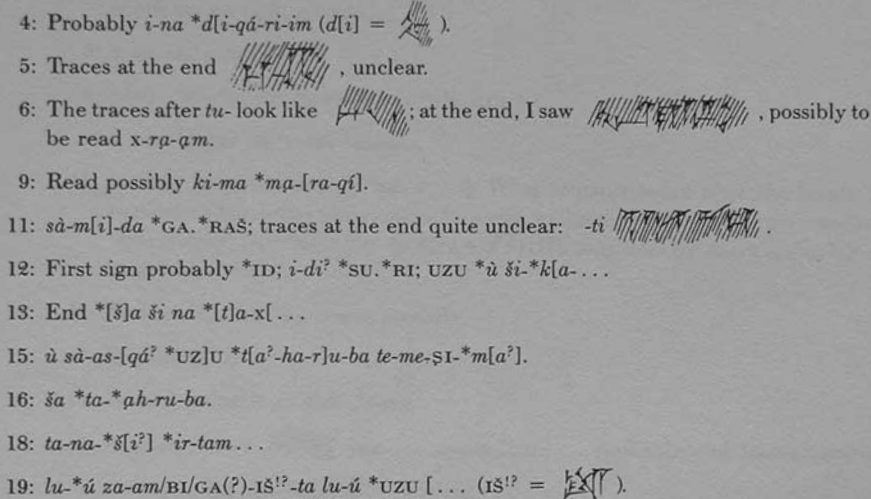 4: Probably i-na *d[i-qá-ri-im (d[i] = ).
5: Traces at the end , unclear.
6: The traces after tu- look like ; at the end, I saw , possibly to
be read x-rạ-ạm.
9: Read possibly ki-ma *mạ-[ra-qí].
11: sà-m[i]-da *GA.*RAŠ; traces at the end quite unclear: -ti .
12: First sign probably *ID; i-di? *SU.*RI; UZU *ù ši-*k[a-...
13: End *[š]a ši na *[t]a-x[...
15: ù sà-as-[qá? *UZ]U *t[a?-ha-r]u-ba te-me-ṢI-*m[a?].
16: ša *ta-*ạh-ru-ba.
18: ta-na-*š[i?] *ir-tam...
19: lu-*ú za-am/BI/GA(?)-IŠ!?-ta lu-ú *UZU [... (IŠ!? = ).